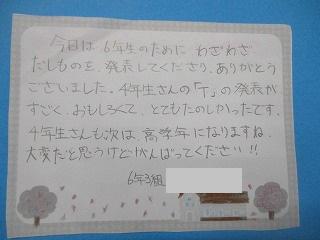 今日は、6年生のために わざわざ
だしものを、発表してくださり、ありがとう
ございました。4年生さんの「T」の発表が
すごく、おもしろくて、とてもたのしかったです。
4年生さんも次は 高学年になりますね。
大変だと思うけどがんばってください!!
6年3組